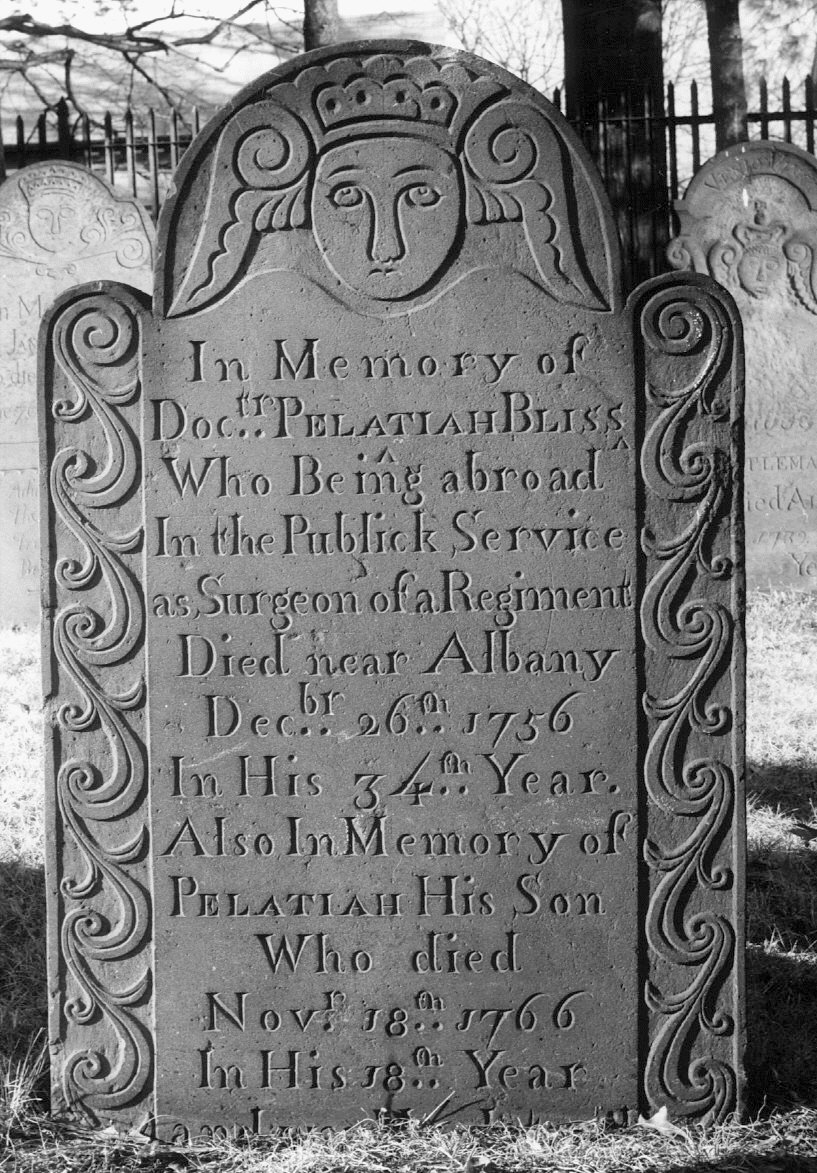 In Memory of
Doc.tr PELATIAH BLISS
Who Being abroad
In the Publick Service
as Surgeon of a Regiment
Died near Albany
Dec.br 26th 1756
In His 34th Year.
Also In Memory of
PELATIAH His Son
Who died
Novr 18th 1766
In His 18th Year